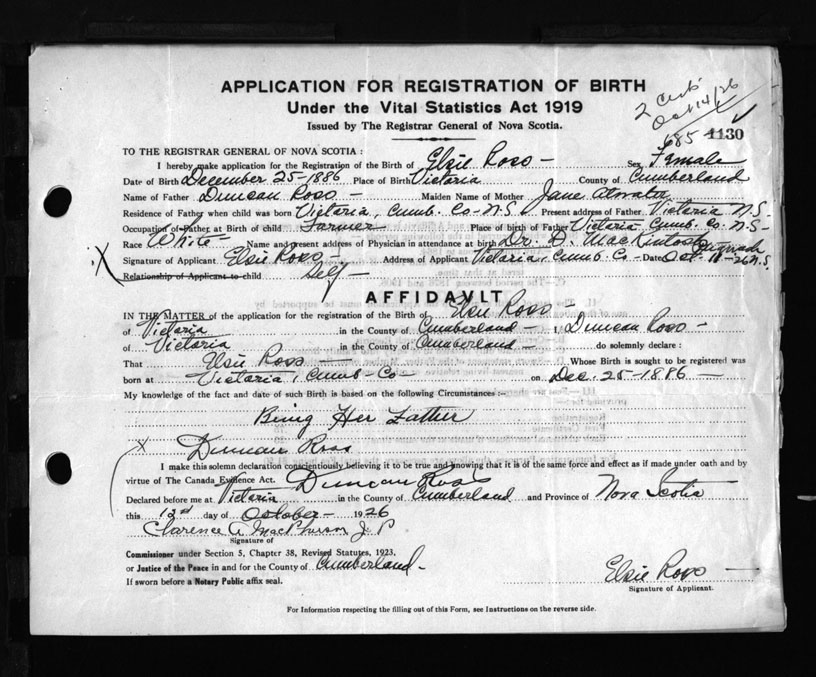 APPLICATION FOR REGISTRATION OF BIRTH
Under the Vital Statistics Act 1919
Issued by The Registrar General of Nova Scotia.
Oct 14/26
685 1130
TO THE REGISTRAR GENERAL OF NOVA SCOTIA:
I hereby make application for the Registration of the Birth of Elsie Ross - Sex Female
Date of Birth December 25-1886 Place of Birth Victoria County of Cumberland
Name of Father Duncan Ross - Maiden Name of Mother Jane Atwater
Residence of Father when child was born Victoria, Cumb. Co-N.S. Present address of Father Victoria N.S.
Occupation of Father at Birth of child Farmer - Place of birth of Father Victoria Cumb. Co. N-S-
Race White - Name and present address of Physician in attendance at birth Dr. D. MacKintosh
Signature of Applicant Elsie Ross - Address of Applicant Victoria, Cumb. Co - Date Oct. 11-26 N.S.
X Relationship of Applicant to child Self -
AFFIDAVIT
IN THE MATTER of the application for the registration of the Birth of Elsie Ross -
of Victoria in the County of Cumberland - I, Duncan Ross -
of Victoria in the County of Cumberland - do solemnly declare :
That Elsie Ross Whose Birth is sought to be registered was
born at Victoria, Cumb-Co- on Dec. 25-1886 -
My knowledge of the fact and date of such Birth is based on the following Circumstances :-
Being Her Father
X Duncan Ross
I make this solemn declaration conscientiously believing it to be true and knowing that it is of the same force and effect as if made under oath and by
virtue of The Canada Evidence Act. Duncan Ross
Declared before me at Victoria in the County of Cumberland and Province of Nova Scotia
this 12nd day of October - 1926
Clarence A. MacPherson J. P
Signature of
Commissioner under Section 5, Chapter 38, Revised Statutes, 1923.
or Justice of the Peace in and for the County of Cumberland -
If sworn before a Notary Public affix seal.
Elsie Ross -
Signature of Applicant.
For Information respecting the filling out of this Form, see Instructions on the reverse side.